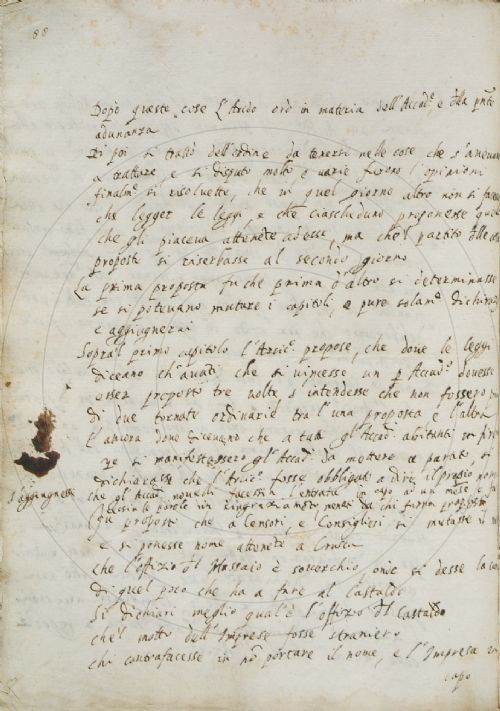 88
Dopo queste cose l'Arido orò in materia dell'Accad.ª e della pnte
adunanza
Di poi si trattò dell'ordine da tenersi nelle cose che s'aveuano
a trattare e si disputò molto e varie furono l'opinioni
finalm.e si risoluette, che in quel giorno altro non si facesse
che legger le leggi, e che ciascheduno proponesse quel
che gli piaceua attenente ad esse, ma che'l partito delle cose
proposte si riserbasse al secondo giorno
La prima proposta fu che prima d'altro si determinasse
se si poteuano mutare i capitoli, o pure solam.e dichiarare
e aggiugnerui
Sopra'l primo capitolo l'Arcic.º propose, che doue le leggi
diceano ch'auāti che si vincesse un Accad.º douesse
esser proposto tre uolte s'intendesse che non fossero
di due tornate ordinarie tra l'una proposta e l'altra
E ancora doue diceuano che a tutti gl'Accad.i abitanti in Firenze
si manifestassero gl'Accad.i da mettere a partito, si
dichiarasse che l'Arcic.º fosse obbligato a dire il proprio nome
s'aggiugnesse
che gli Accad.i nouelli facessin l'entrata in capo di un mese e
facessin le parole in ringraziamento
proposti che a Censori, e Consiglieri si mutasse il nome
e si ponesse nome attenente a Crusca
che l'offizio del Massaio è souerchio, onde si desse la
di quel poco che ha a fare al Castaldo
Si dichiari meglio qual'è l'offizio del Castaldo
che'l motto dell'Imprese fosse straniero
chi contrafacesse in nō portare il nome, e l'Impresa in
capo